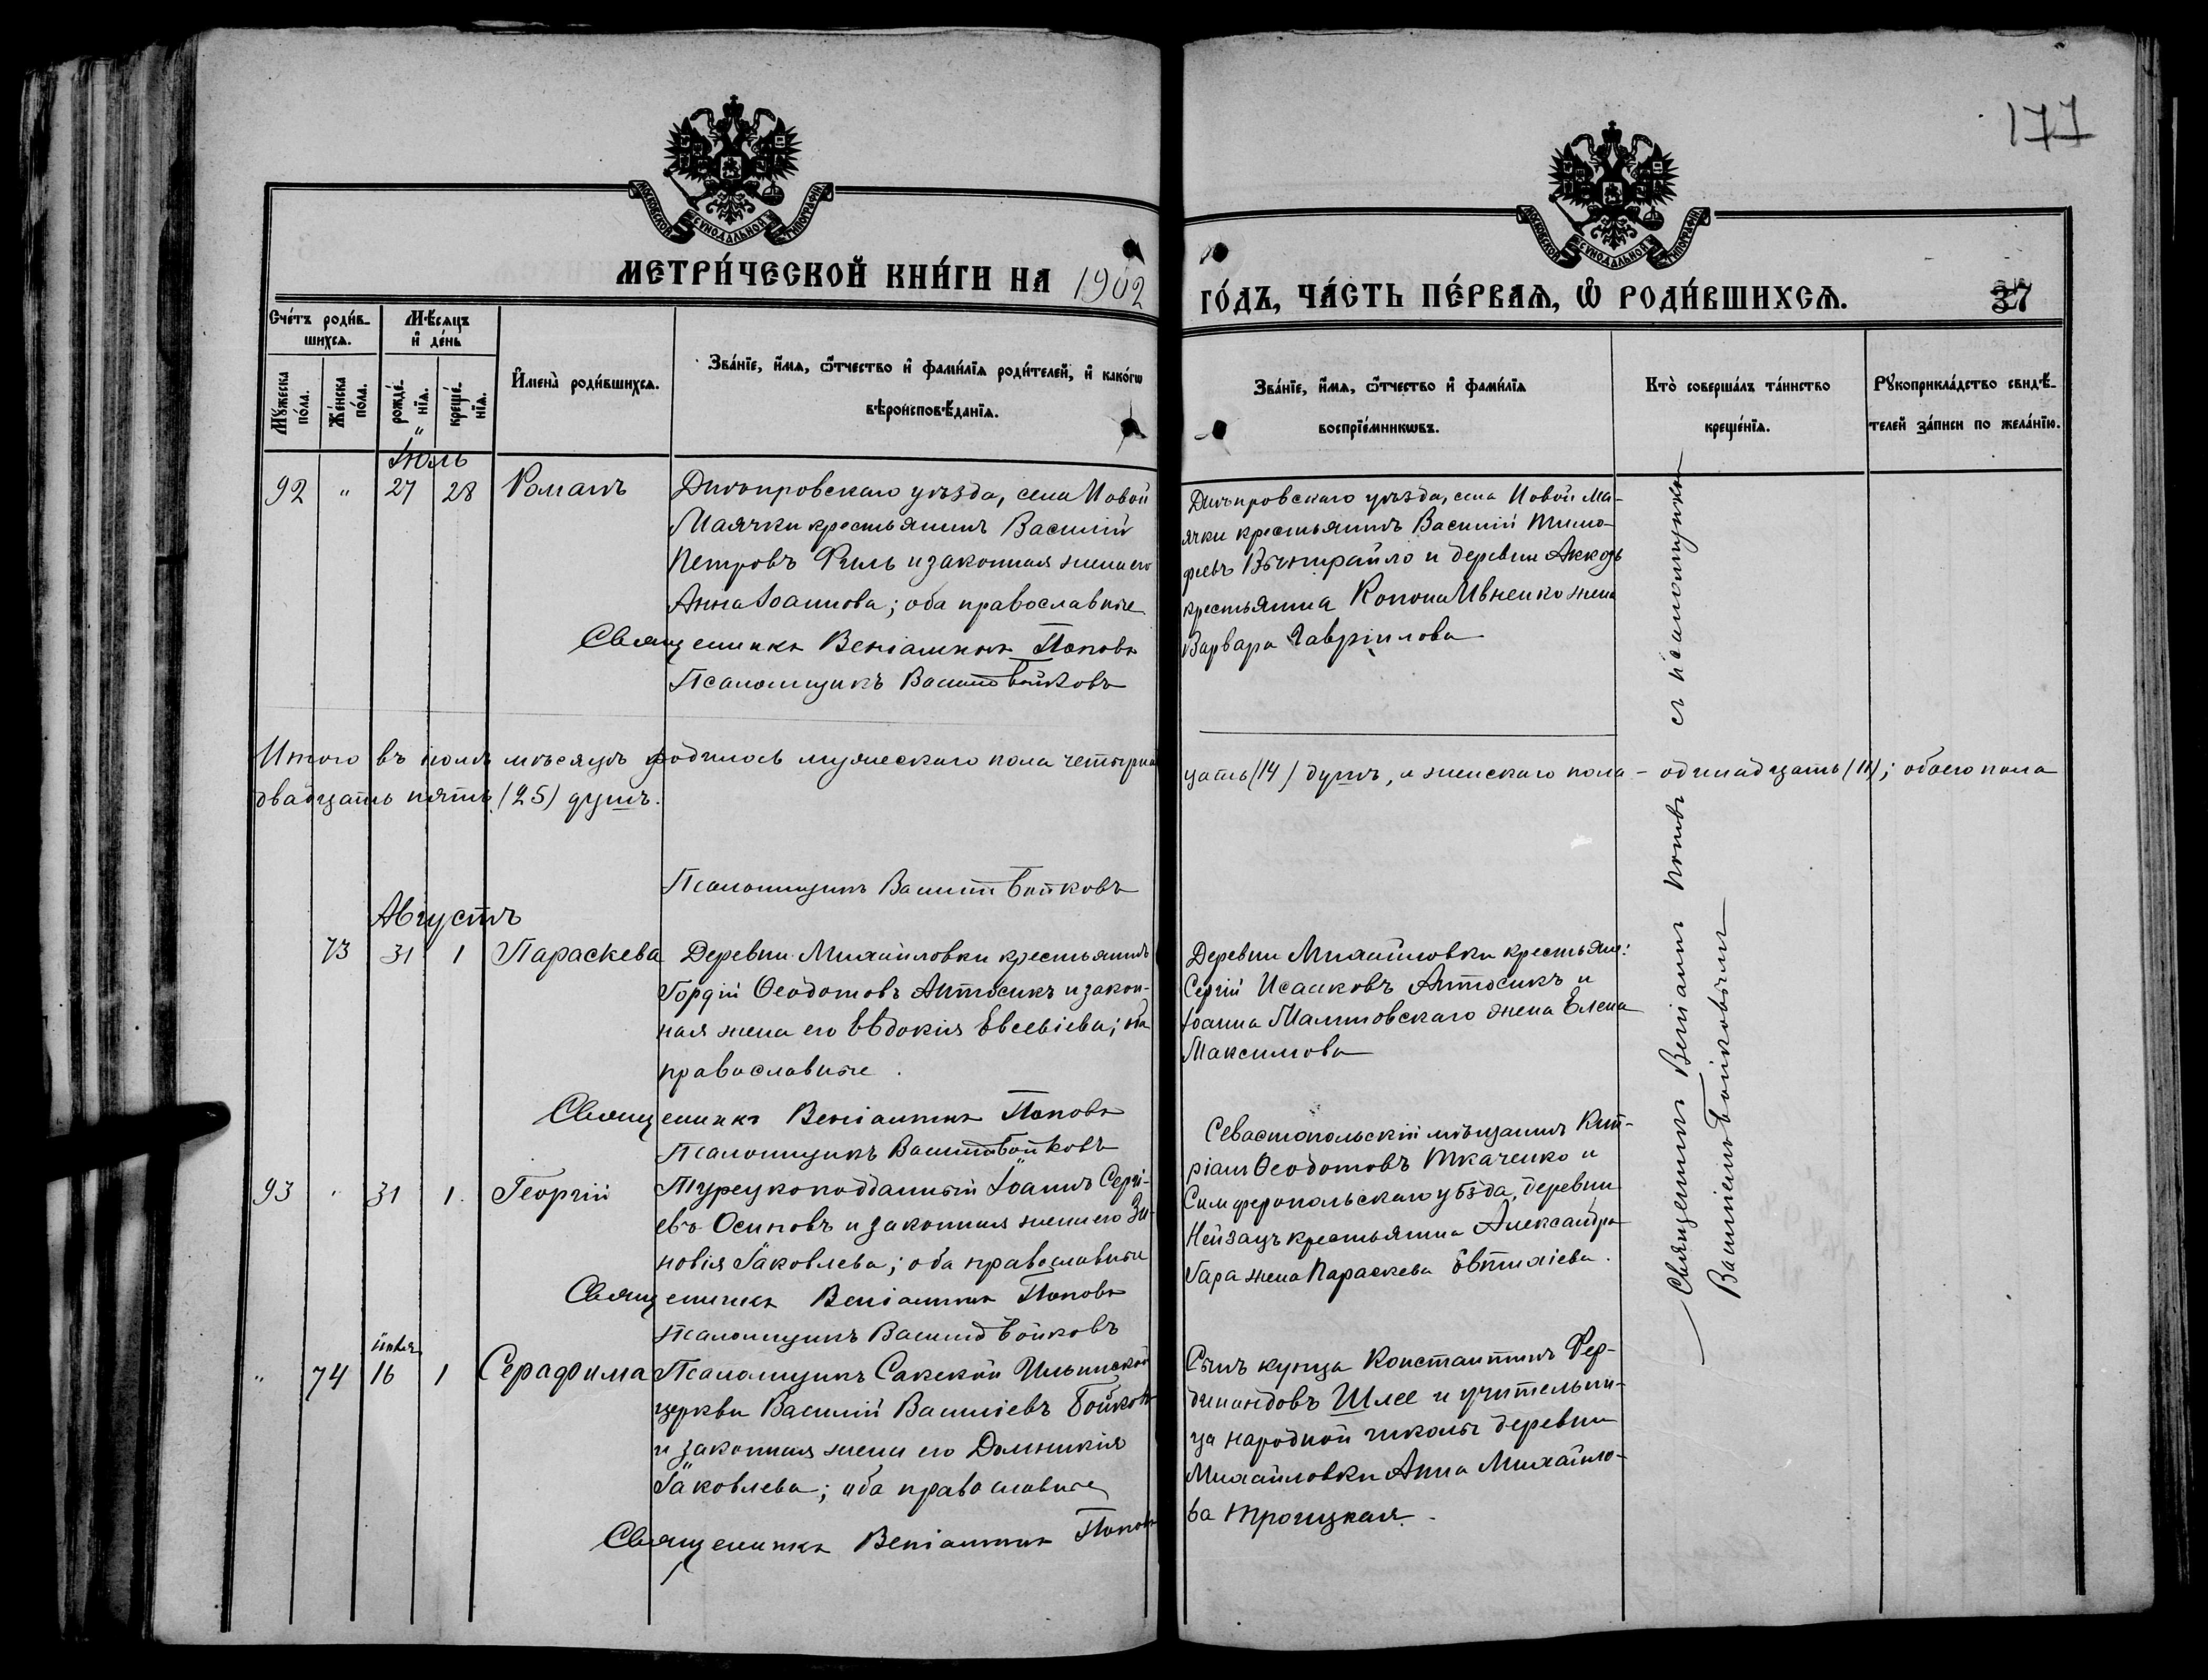 177
МОСКОВСКОЙ СѴНОДАЛЬНОЙ ТИПОГРАФІИ
МОСКОВСКОЙ СѴНОДАЛЬНОЙ ТИПОГРАФІИ
МЕТРИ́ЧЕСКОЙ КНИ́ГИ НА 1902
ГО́ДЪ, ЧА́СТЬ ПЕ́РВАѦ, Ѡ РОДИ́ВШИХСѦ.
37
Сче́тъ роди́в-
шихсѧ.
Мꙋ́жеска по́ла.
Же́нска по́ла.
Мѣ́сѧцъ
и҆ де́нь
рожде́-
нїѧ.
креще́-
нїѧ.
И҆мена̀ роди́вшихсѧ.
Зва́нїе, и҆́мѧ, ѻ҆́тчество и҆ фами́лїѧ роди́телей, и҆ како́гѡ
вѣроисповѣ́данїѧ.
Зва́нїе, и҆́мѧ, ѻ҆́тчество и҆ фами́лїѧ
воспрїе́мникѡвъ.
Кто̀ соверша́лъ та́инство
креще́нїѧ.
Рꙋкоприкла́дство свидѣ́-
телей за́писи по жела́нїю.
Іюль
92 " 27 28 Романъ
Днѣпровскаго уѣзда, села Новой
Маячки крестьянинъ Василій
Петровъ Филь и законная жена его
Анна Іоаннова; оба православные
Священникъ Веніаминъ Поповъ
Псаломщикъ Василій Бойковъ
Днѣпровскаго уѣзда, села Новой Ма-
ячки крестьянинъ Василій Тимо-
крестьянина Конона Ивненко жена
Варвара Гавріилова
Итого въ іюлѣ мѣсяцѣ родилось мужескаго пола четырнад
цать (14) душъ, а женскаго пола – одинадцать (11); обоего пола
двадцать пять (25) душъ.
Псаломщикъ Василій Бойковъ
Августъ
73 31 1 Параскева
Деревни Михайловки крестьянинъ
Гордій Ѳеодотовъ Антосикъ и закон-
ная жена его Евдокія Евсевіева; оба
православные.
Священникъ Веніаминъ Поповъ
Псаломщикъ Василій Бойковъ
Деревни Михайловки крестьян:
Сергій Исааковъ Антосикъ и
Іоанна Малиновскаго жена Елена
Максимова
93 " 31 1. Георгій
Турецкоподданный Іоаннъ Сергі-
евъ Осиповъ и законная жена его Зи-
новія Іаковлева; оба православные
Священникъ Веніаминъ Поповъ
Псаломщикъ Василій Бойковъ
Севастопольскій мѣщанинъ Кип-
ріанъ Ѳеодотовъ Ткаченко и
Симферопольскаго уѣзда, деревни
Нейзацъ крестьянина Александра
Гара жена Параскева Евтихіева.
іюля
" 74 16 1 Серафима
Псаломщикъ Сакской Ильинской
церкви Василій Василіевъ Бойковъ
и законная жена его Домникія
Іаковлева; оба православные
Священникъ Веніаминъ Поповъ
Сынъ купца Константинъ Фер-
динандовъ Шлее и учительни-
ца народной школы деревни
Михайловки Анна Михайло-
ва Троицкая.
Священникъ Веніаминъ Поповъ съ псаломщикомъ
Василіемъ Бойковымъ